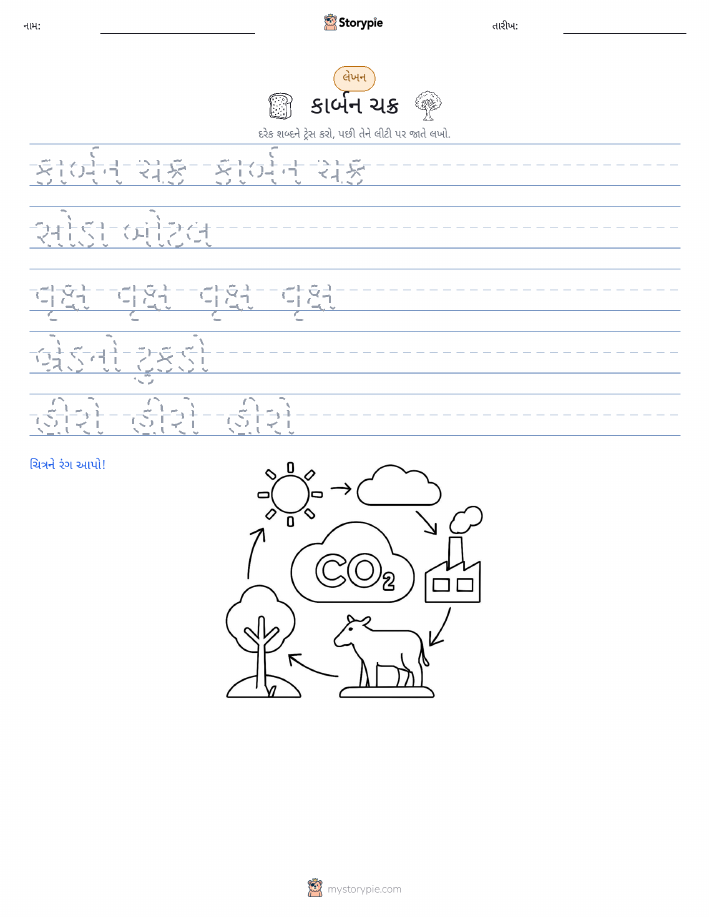 નામ:
Storypie
તારીખ:
લેખન
કાર્બન ચક્ર
દરેક શબ્દને ટ્રેસ કરો, પછી તેને લીટી પર જાતે લખો.
કાર્બન ચક્ર કાર્બન ચક્ર
સોડા બોટલ
વૃક્ષ વૃક્ષ વૃક્ષ વૃક્ષ
બ્રેડનો ટુકડો
હીરો હીરો હીરો
ચિત્રને રંગ આપો!
CO₂
mystorypie.com